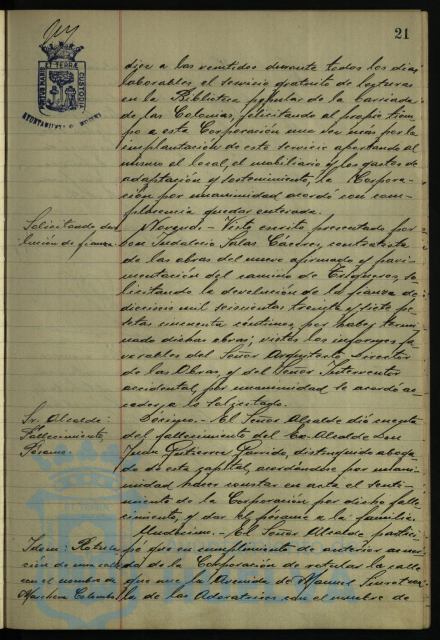 21
PORTUS MARIS ET TERRÆ CUSTODIA
diez a las veintidos durante todos los dias
laborables el servicio gratuito de lecturas
en la Biblioteca popular de la barriada
de las Colonias, felicitando al propio tiem-
po a esta Corporación una vez mas por la
implantación de este servicio aportando al
mismo el local, el mobiliario y los gastos de
adaptación y sostenimiento, la Corpora-
ción por unanimidad acordó con com-
placencia quedar enterada.
Solicitando devo-
lución de fianza.
Noveno.- Visto escrito presentado por
Don Indalecio Salas Cáceres, contratista
de las obras del nuevo afirmado y pavi-
mentación del camino de Trigueros, so-
licitando la devolución de la fianza de
diecinco mil seiscientas treinta y siete pe-
setas cincuenta céntimos, por haber termi-
nado dichas obras; vistos los informes fa-
vorables del Señor Arquitecto Director
de las Obras, y del Señor Interventor
accidental, por unanimidad se acordó ac-
ceder a lo solicitado.
Sr. Alcalde:
Fallecimiento,
Pésame.
Décimo.- El Señor Alcalde dió cuenta
del fallecimiento del Ex-Alcalde Don
Juan Gutierrez Garrido, distinguido aboga-
do de esta capital, acordándose por unani-
midad hacer constar en acta el senti-
miento de la Corporación por dicho falle-
cimiento, y dar el pésame a la familia.
Undécimo.- El Señor Alcalde partici-
Idem: Rotula-
ción de una calle
con el nombre de
Marchena Colombo
pó que en cumplimiento de anterior acuer-
do de la Corporación de rotular la calle
que une la Avenida de Manuel Siurot con
la de las Adoratrices con el nombre de